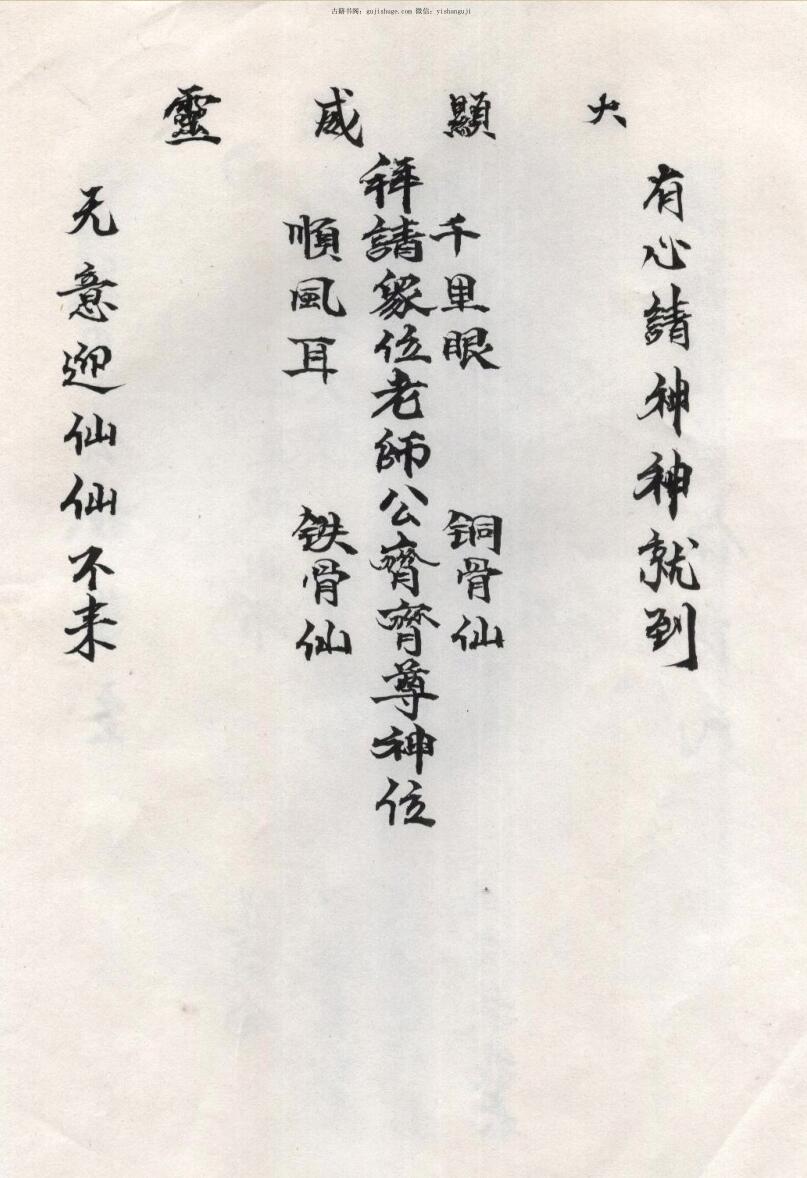 古籍书阁：gujishuge.com 微信：yishanguji
大顯威靈
有心請神神就到
千里眼 铜骨仙
拜請衆位老師公齊齊尊神位
順風耳 铁骨仙
无意迎仙仙不来